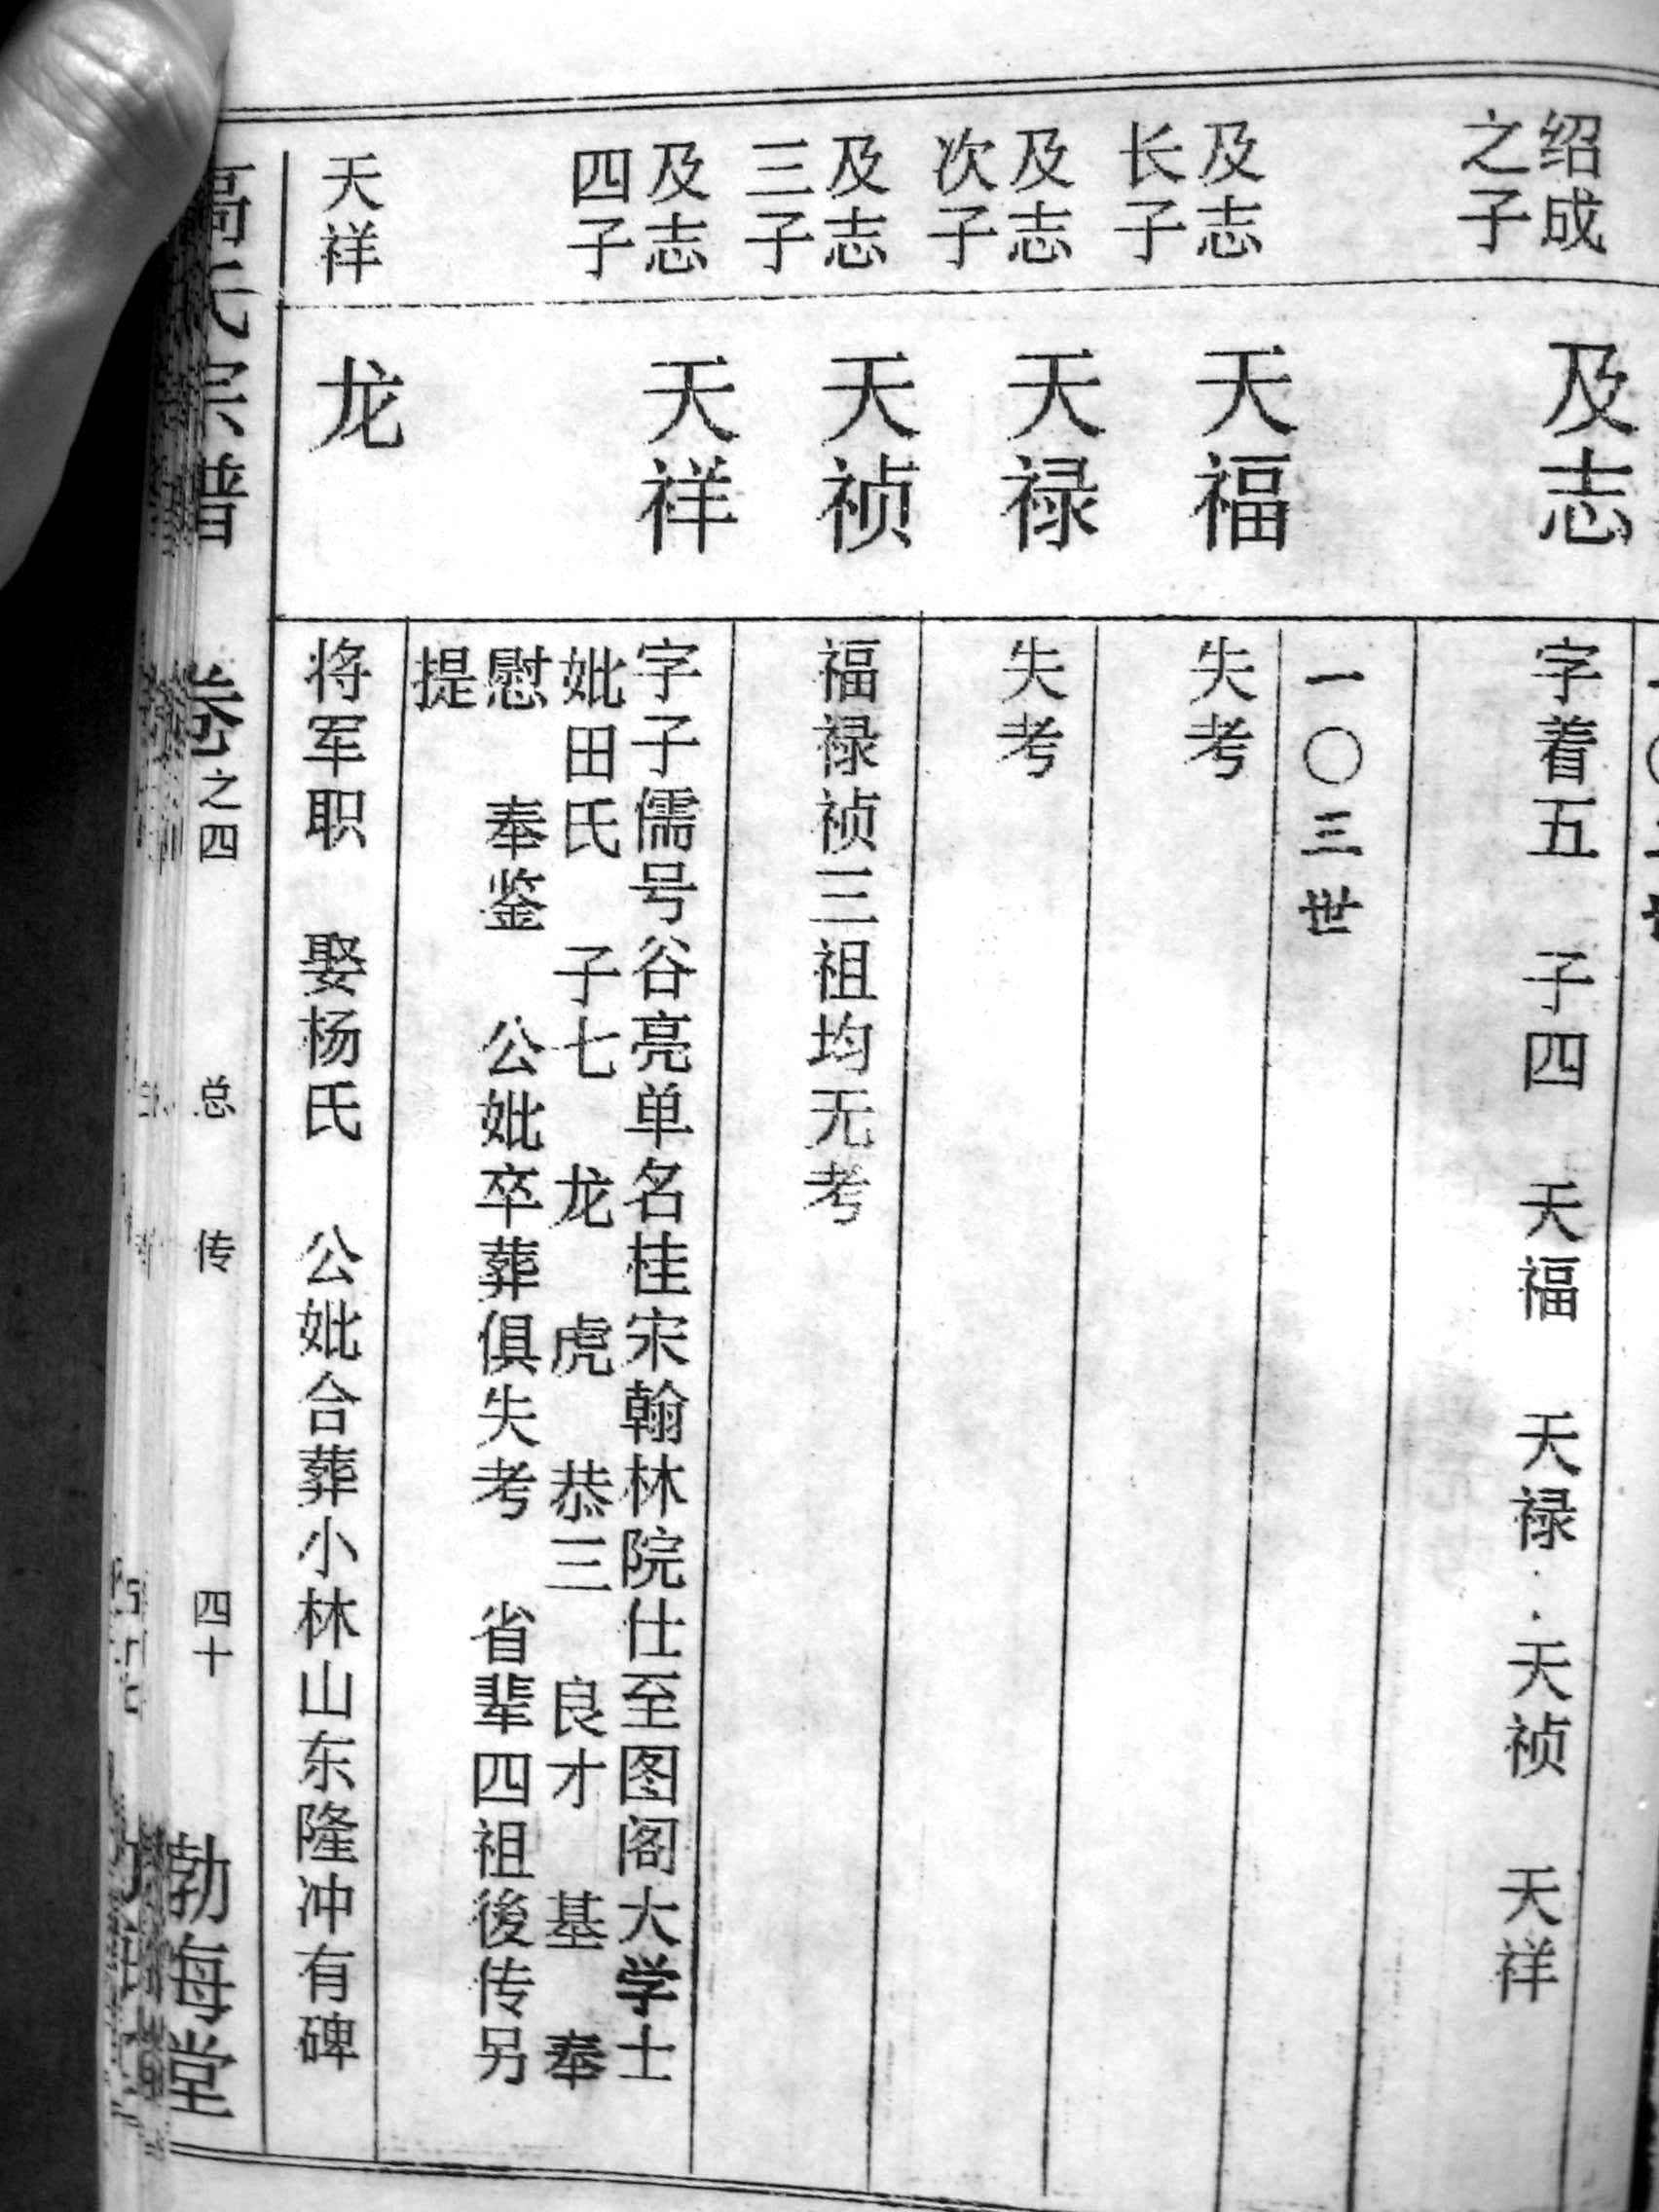 绍成
之子
及志
字着五　子四　天福　天禄　天祯　天祥
一〇三世
及志
长子
天福
失考
及志
次子
天禄
失考
及志
三子
天祯
福禄祯三祖均无考
及志
四子
天祥
字子儒号谷亮单名桂宋翰林院仕至图阁大学士
妣田氏　子七　龙　虎　恭三　良才　基　奉
慰　奉鉴　公妣卒葬俱失考　省辈四祖後传另
提
天祥
龙
将军职　娶杨氏　公妣合葬小林山东隆冲有碑
高氏宗谱　卷之四　总传　四十　勃海堂